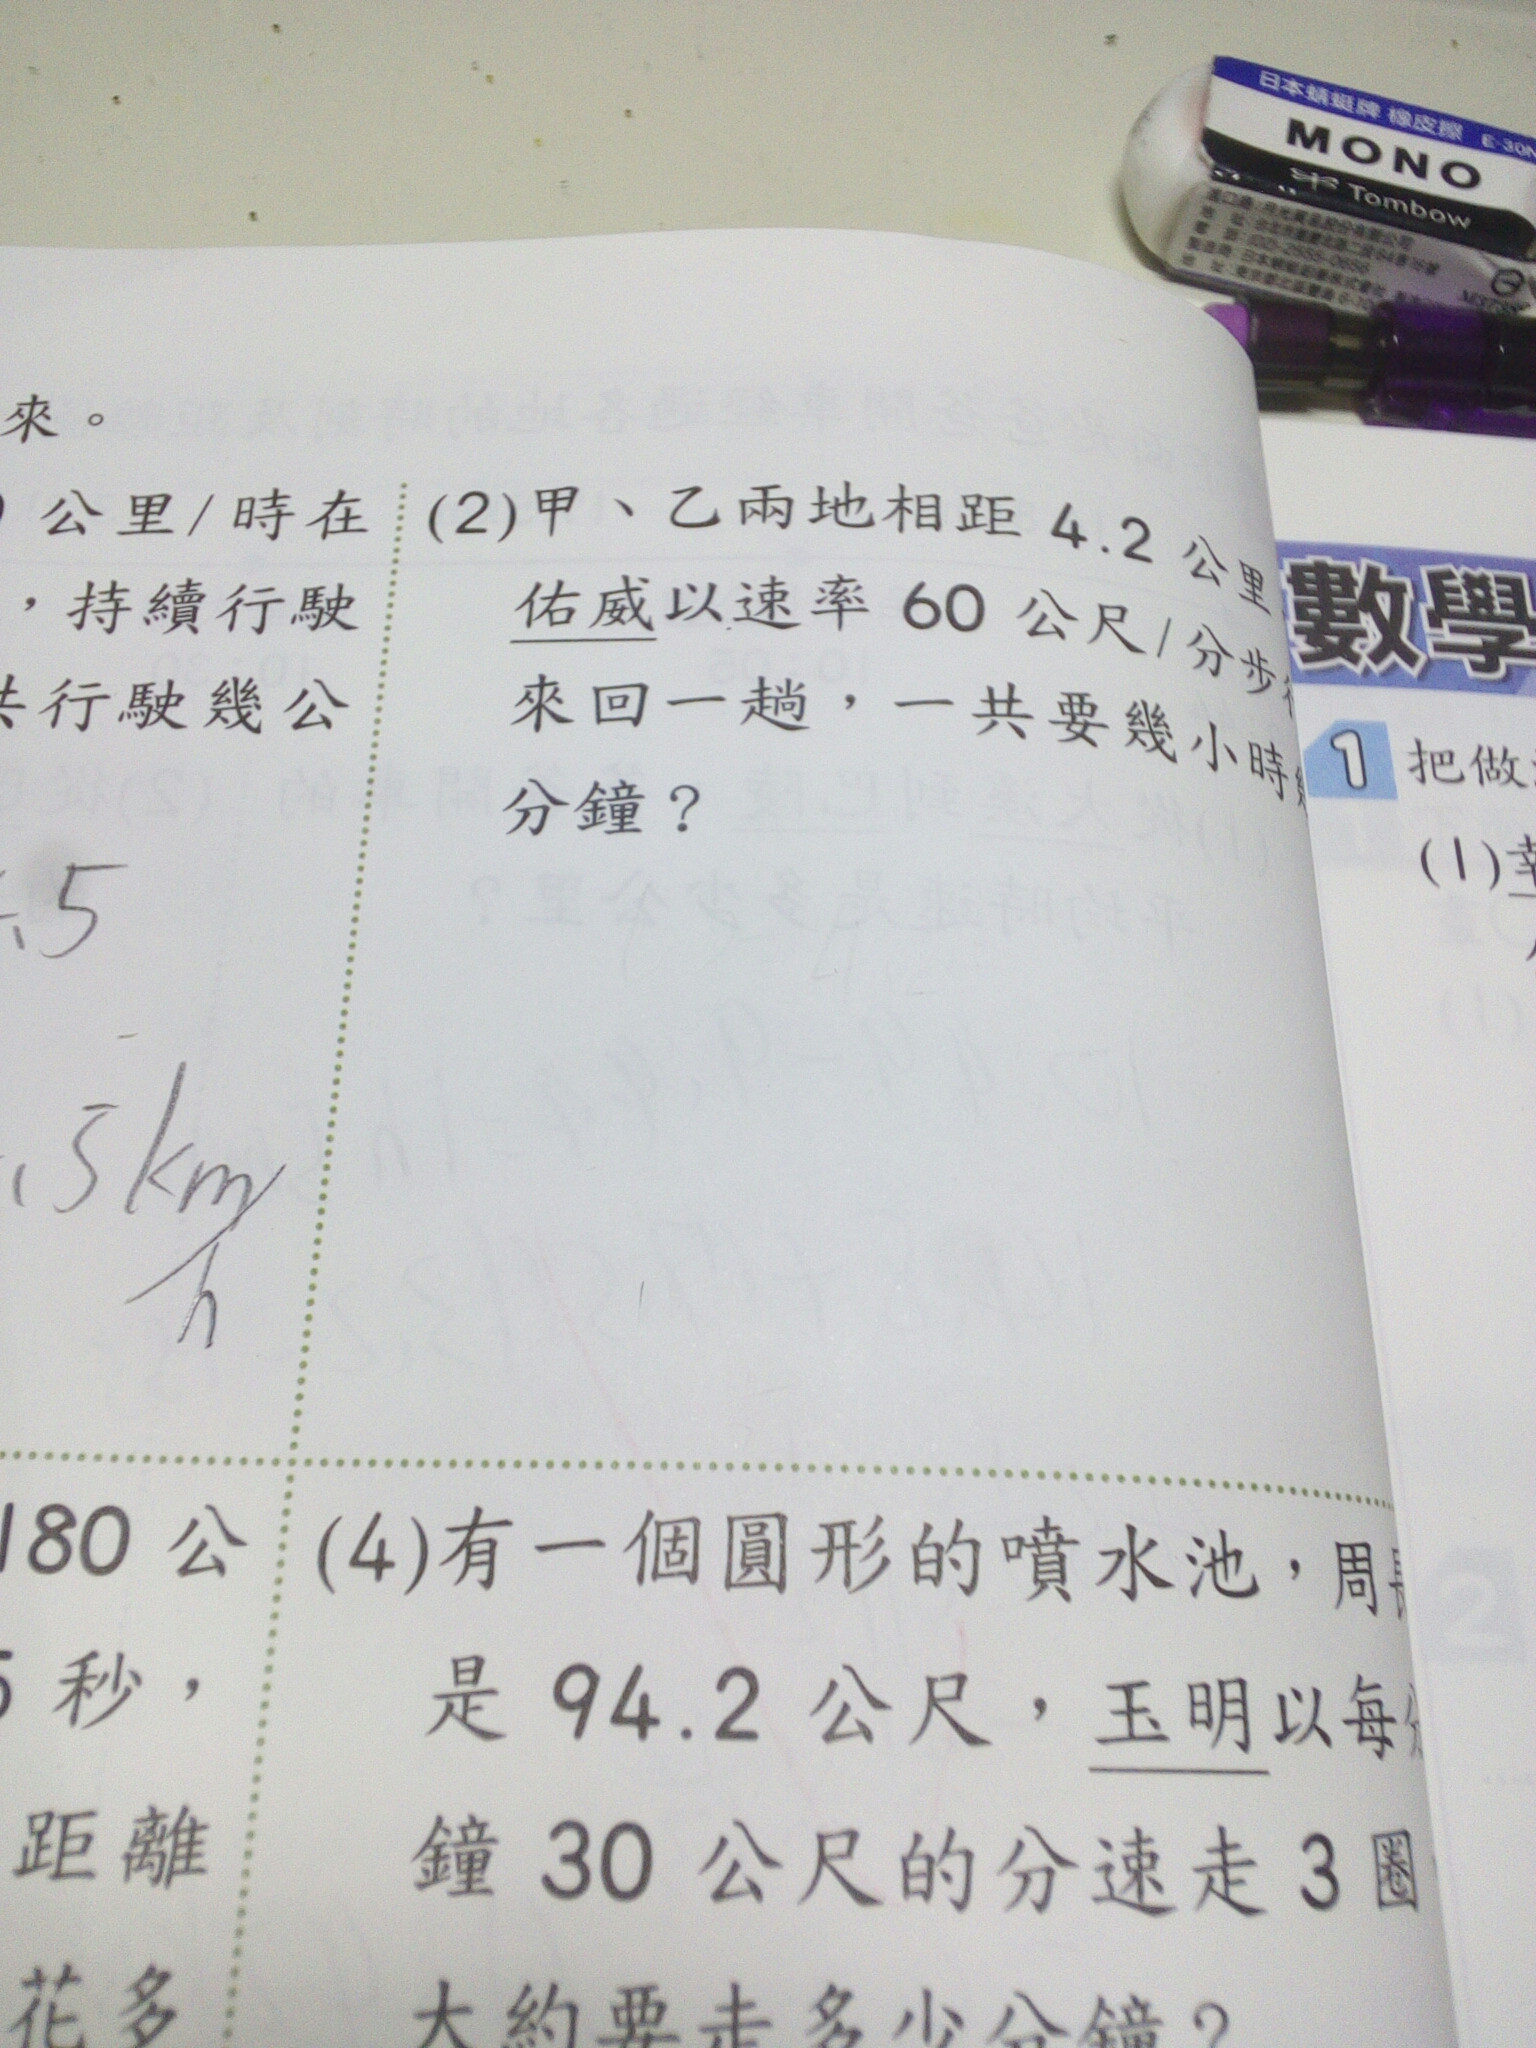 日本蜻蜓牌 橡皮擦 E-30
MONO
Tombow
來。
公里/時在
，持續行駛
共行駛幾公
.5
.5 km
h
(2)甲、乙兩地相距 4.2 公里
佑威以速率 60 公尺/分步
來回一趟，一共要幾小時
分鐘？
180 公
秒，
距離
花多
(4)有一個圓形的噴水池，周長
是 94.2 公尺，玉明以每分
鐘 30 公尺的分速走 3 圈
大約要走多少分鐘？
數學
1 把做
(1)